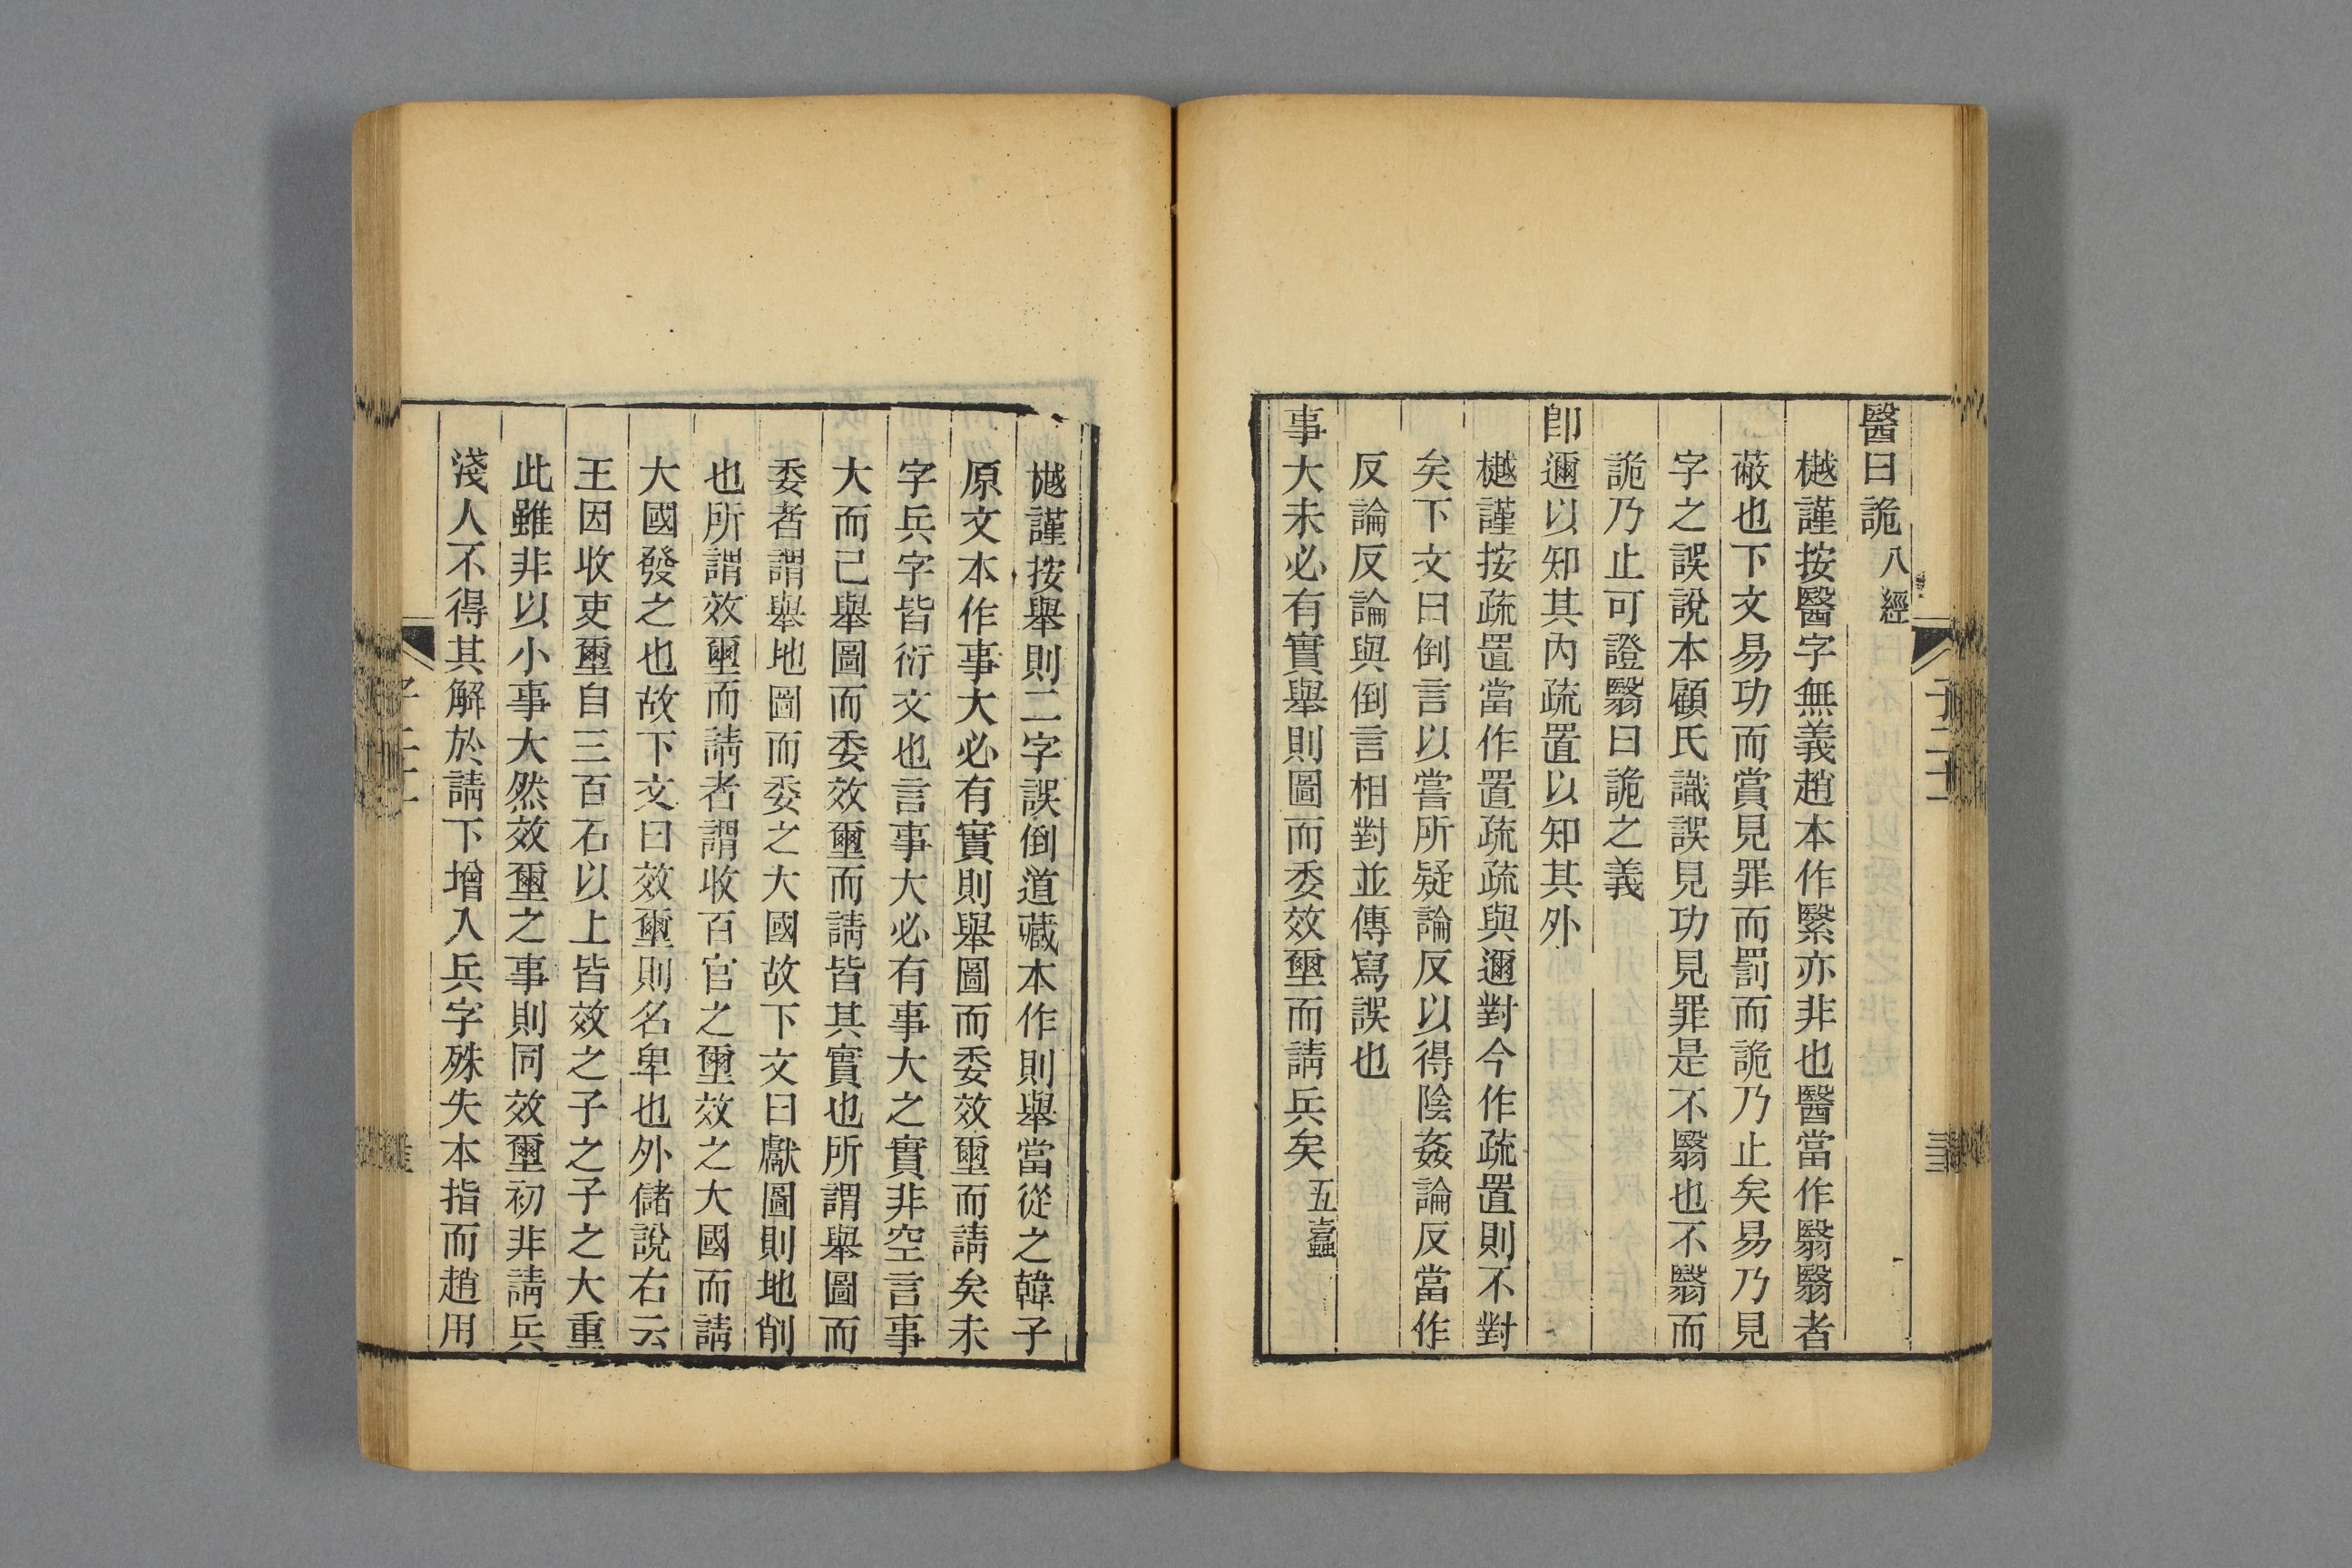 醫曰詭八經
樾謹按醫字無義趙本作繄亦非也醫當作翳翳者
蔽也下文易功而賞見罪而罰而詭乃止矣易乃見
字之誤說本顧氏識誤見功見罪是不翳也不翳而
詭乃止可證翳曰詭之義
卽邇以知其內疏置以知其外
樾謹按疏置當作置疏疏與邇對今作疏置則不對
矣下文曰倒言以嘗所疑論反以得陰姦論反當作
反論反論與倒言相對並傳寫誤也
事大未必有實舉則圖而委效璽而請兵矣五蠹
樾謹按舉則二字誤倒道藏本作則舉當從之韓子
原文本作事大必有實則舉圖而委效璽而請矣未
字兵字皆衍文也言事大必有事大之實非空言事
大而已舉圖而委效璽而請皆其實也所謂舉圖而
委者謂舉地圖而委之大國故下文曰獻圖則地削
也所謂效璽而請者謂收百官之璽效之大國而請
大國發之也故下文曰效璽則名卑也外儲說右云
王因收吏璽自三百石以上皆效之子之子之大重
此雖非以小事大然效璽之事則同效璽初非請兵
淺人不得其解於請下增入兵字殊失本指而趙用